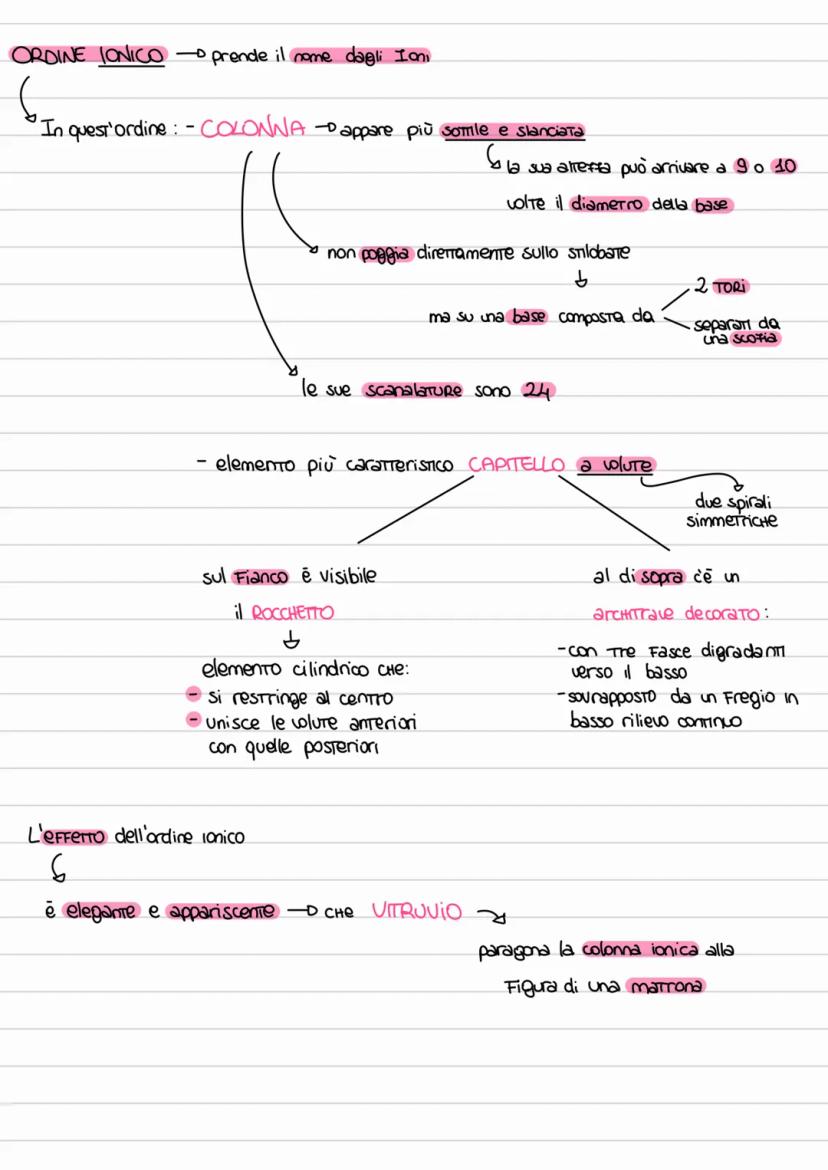 ORDINE IONICO → prende il nome dagli Ioni
In quest'ordine : - COLONNA → appare più sottile e slanciata
la sua altezza può arrivare a 9 o 10
volte il diametro della base
non poggia direttamente sullo stilobate
ma su una base composta da
2 TORI
separati da
una scozia
le sue scanalature sono 24
- elemento più caratteristico CAPITELLO a volute
due spirali
simmetriche
sul fianco è visibile
il ROCCHETTO
elemento cilindrico che:
- si restringe al centro
- unisce le volute anteriori
con quelle posteriori
al di sopra c'è un
architrave decorato :
- con tre fasce digradanti
verso il basso
- sovrapposto da un fregio in
basso rilievo continuo
L'effetto dell'ordine ionico
è elegante e appariscente → che VITRUVIO
paragona la colonna ionica alla
figura di una matrona